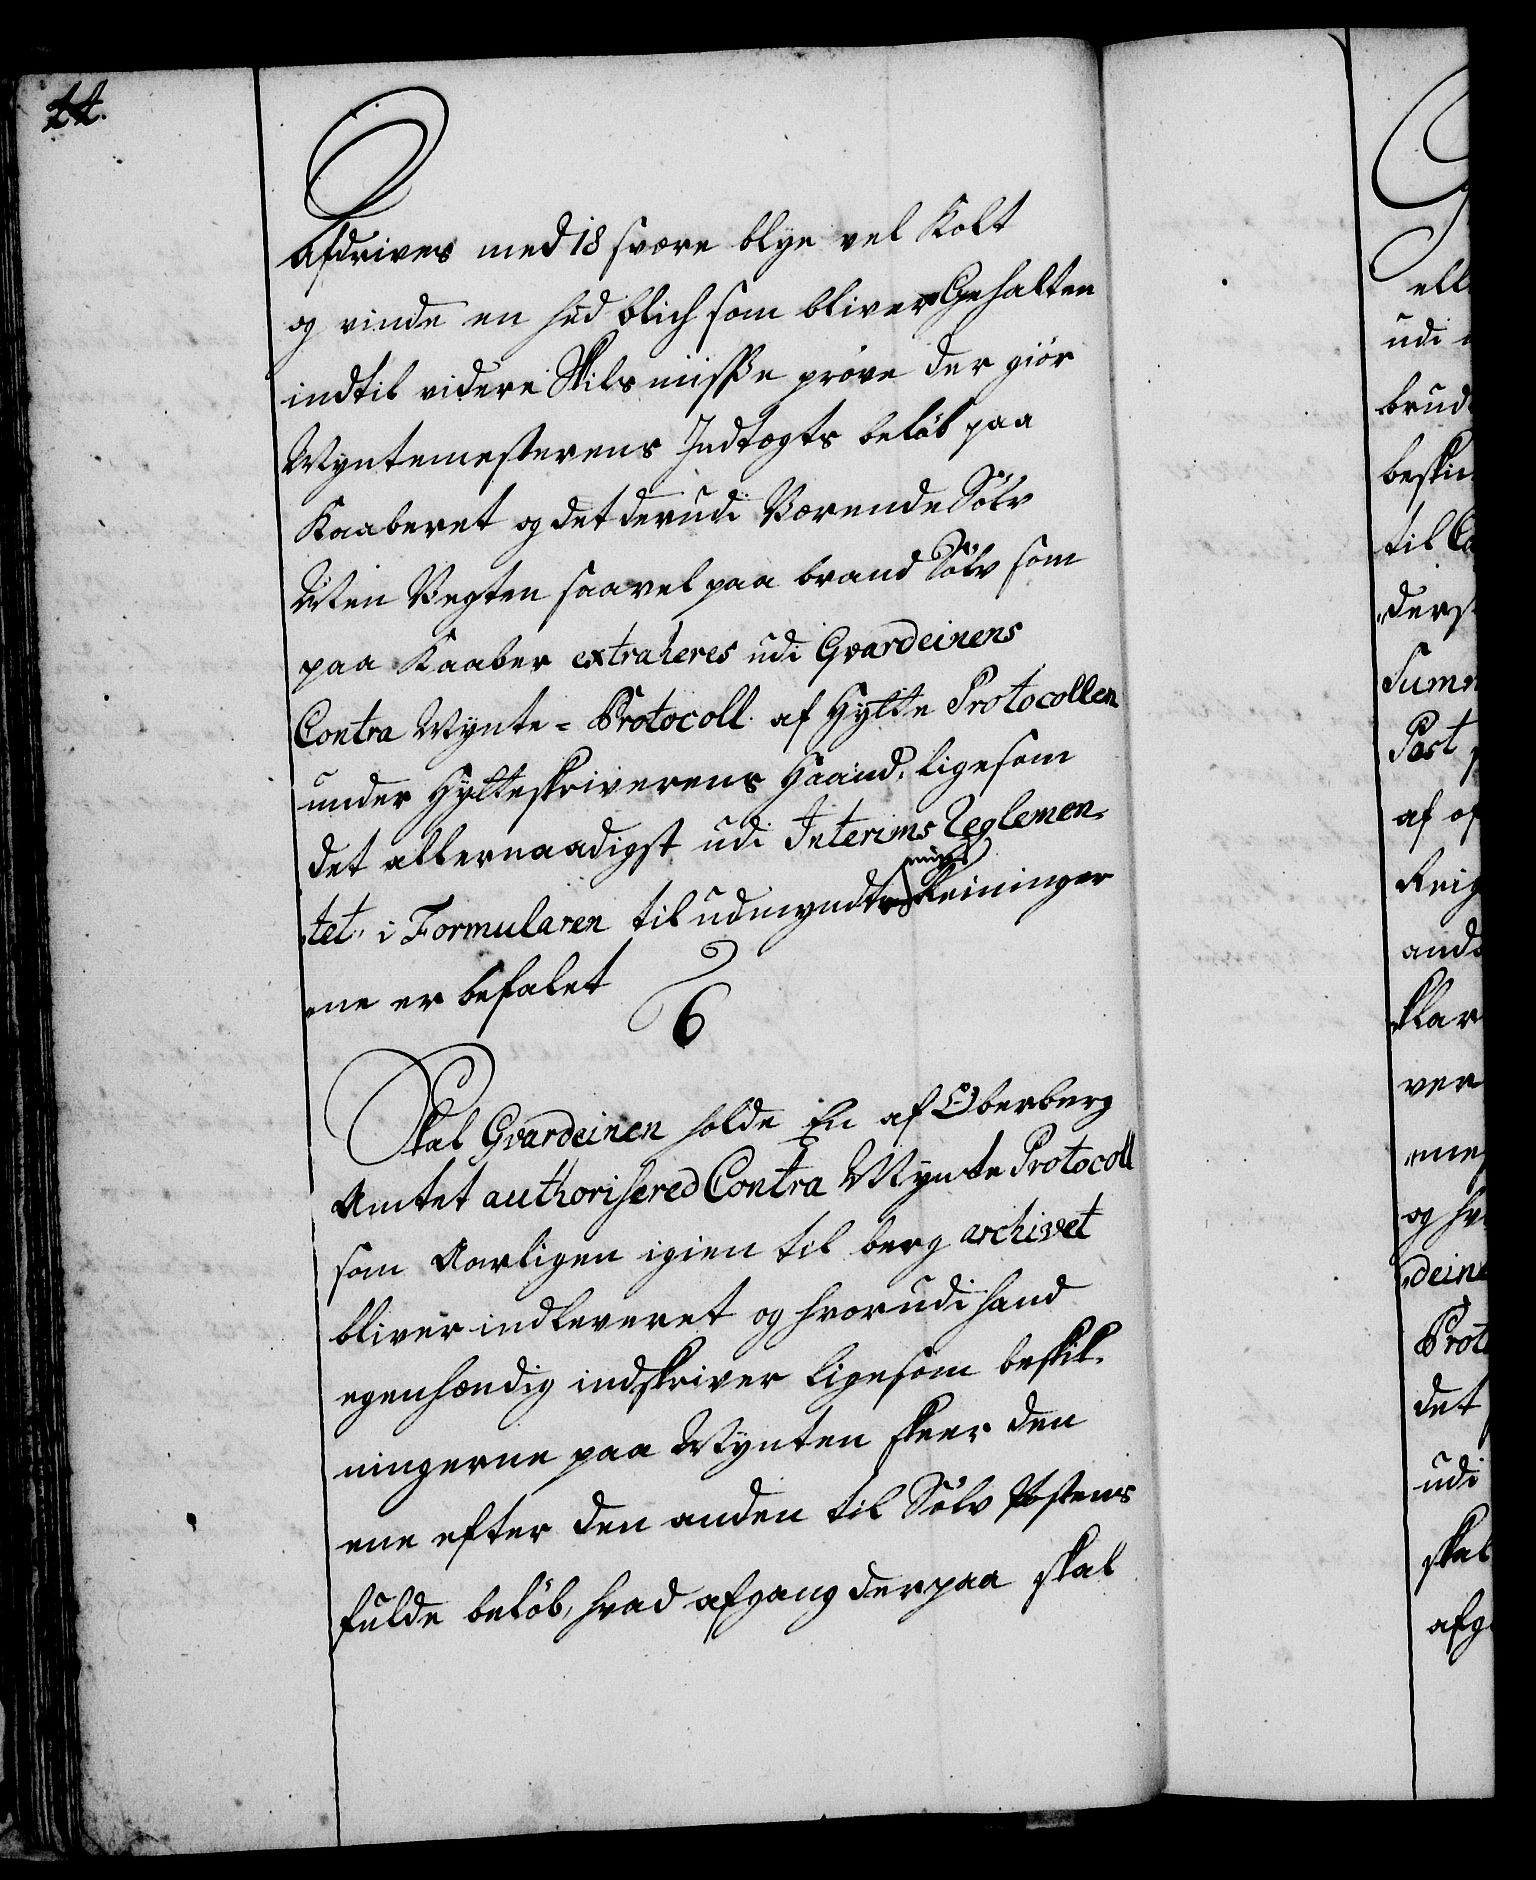 44.
Afdrives med 18 svære blye vel Kolt
og vinde en hud blich som bliver Gehalten
indtil videre Skilsmisse prøve der giör
Myntemesterens Indtægts belöb paa
Kaaberet og det derudi Værende Sölv
Men Vegten saavel paa brand Sölv som
paa Kaaber extraheres udi Gvardeinens
Contra Mynte = Protocoll af Hytte Protocollen
under Hytteskriverens Haand, ligesom
det allernaadigst udi Interims Reglemen-
tet i Formularen til udmyndt
ne er befalet
6
Skal Gvardeinen holde En af Oberberg
Amtet authorisered Contra Mynte Protocoll
som Aarligen igien til berg archivet
bliver indleveret og hvorudi hand
egenhændig indskriver ligesom beskik-
ningerne paa Mynten skeer den
ene efter den anden til Sölv Postens
fulde belöb, hvad afgang derpaa skal
ell
udi
brud
beski
til Co
ders
Summ
Post
af
Reig
and
klar
ver
me
og hv
deine
Proto
det
udi
skal
afg